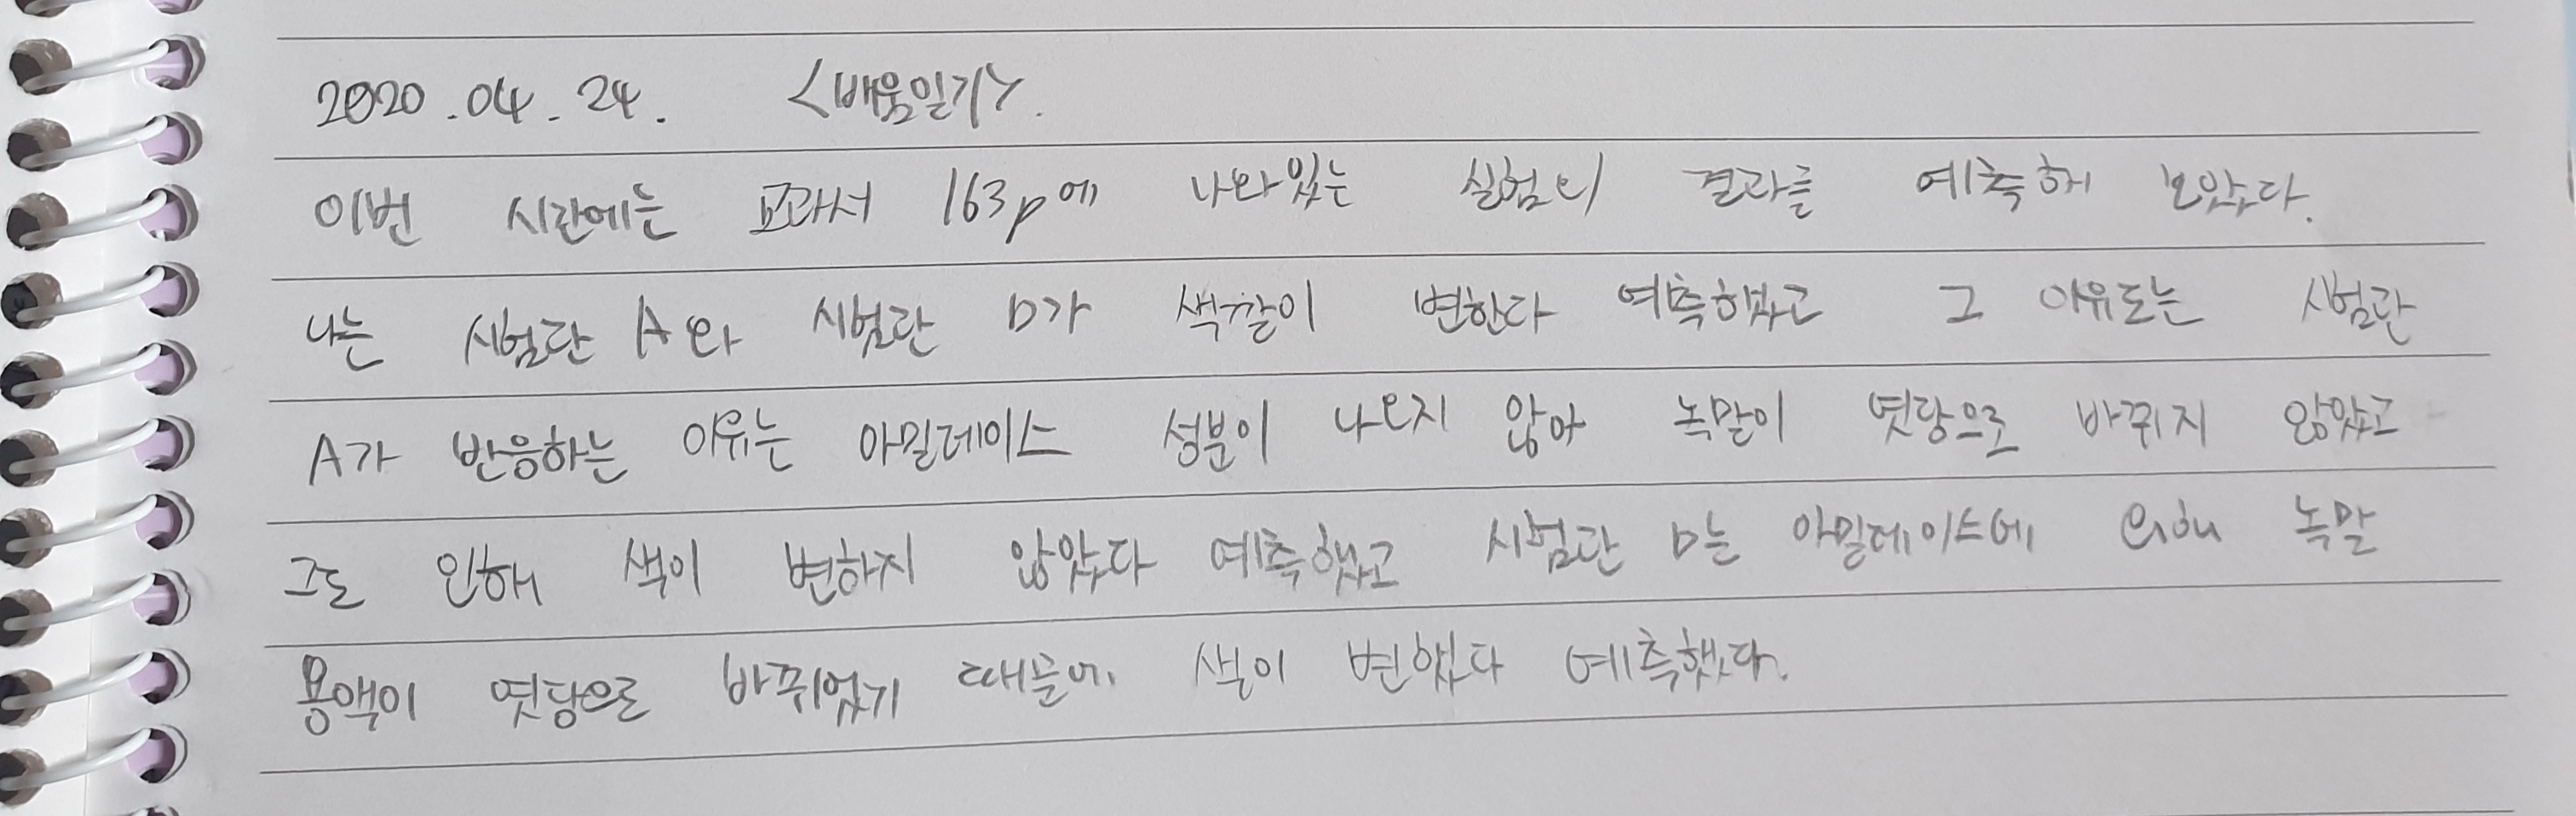 2020.04.24. <배움일기>.
이번 시간에는 교과서 163p에 나와있는 실험의 결과를 예측해 보았다.
나는 시험관 A와 시험관 D가 색깔이 변한다 예측했고 그 이유로는 시험관
A가 반응하는 이유는 아밀레이스 성분이 나오지 않아 녹말이 엿당으로 바뀌지 않았고
그로 인해 색이 변하지 않았다 예측했고 시험관 D는 아밀레이스에 의해 녹말
용액이 엿당으로 바뀌었기 때문에 색이 변했다 예측했다.